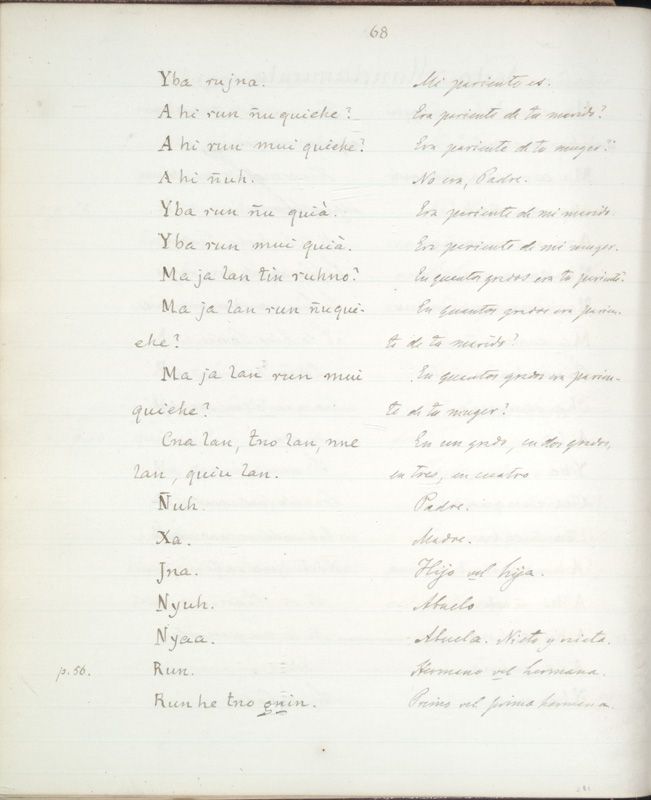 68
Yba rujna. Mi pariente es.
A hi run ñu quiche? Era pariente de tu marido?
A hi run mui quiche? Era pariente de tu muger?
A hi ñuh. No era, Padre.
Yba run ñu quià. Era pariente de mi marido.
Yba run mui quià. Era pariente de mi muger.
Ma ja lan tin ruhno? En quantos grados era tu pariente?
Ma ja lan run ñuqui- En quantos grados era parien-
che? te de tu marido?
Ma ja lan run mui En quantos grados era parien-
quiche? te de tu muger?
Cna lan, tno lan, nne En un grado, en dos grados,
lan, quiu lan. en tres, en cuatro
Ñuh. Padre.
Xa. Madre.
Jna. Hijo vel hija.
Nyuh. Abuelo
Nyaa. Abuela. Nieto y nieta.
p. 56. Run. Hermano vel hermana.
Run he tno Primo vel prima hermana.